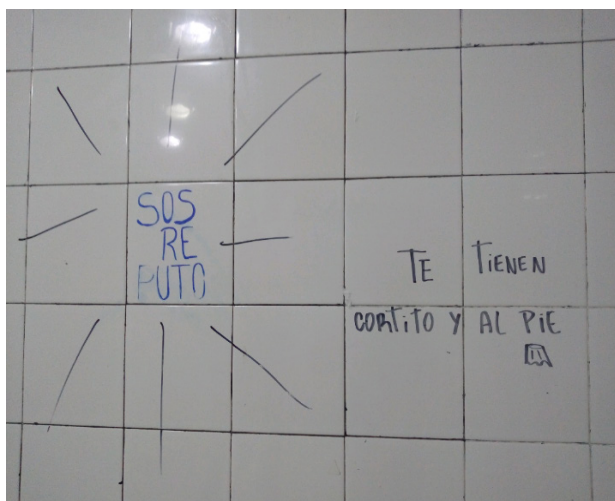 SOS
RE
PUTO
TE TIENEN
CORTITO Y AL PIE